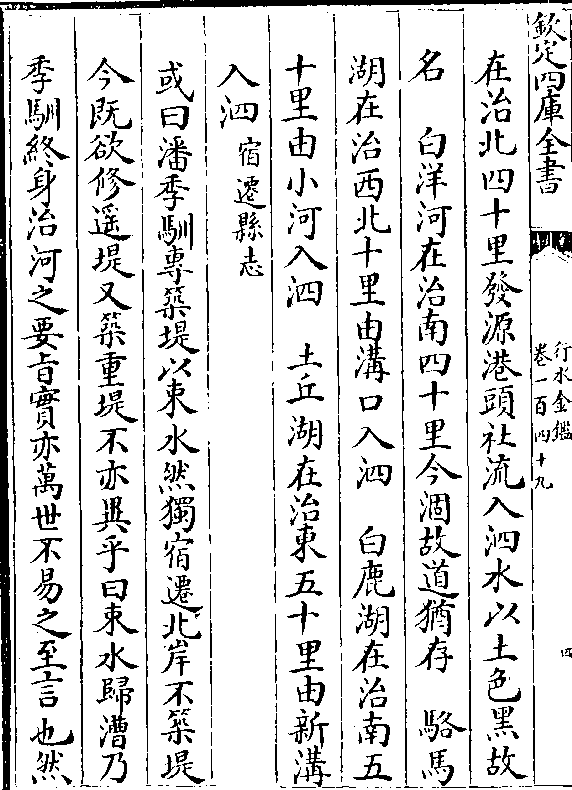 欽定四庫全書
行水金鑑
卷一百四十九
四
在治北四十里發源港頭社流入泗水以土色黑故
名　白洋河在治南四十里今涸故道猶存　駱馬
湖在治西北十里由溝口入泗　白鹿湖在治南五
十里由小河入泗　土丘湖在治東五十里由新溝
入泗宿遷縣志
或曰潘季馴專築堤以束水然獨宿遷北岸不築堤
今既欲修遥堤又築重堤不亦異乎曰束水歸漕乃
季馴終身治河之要旨實亦萬世不易之至言也然